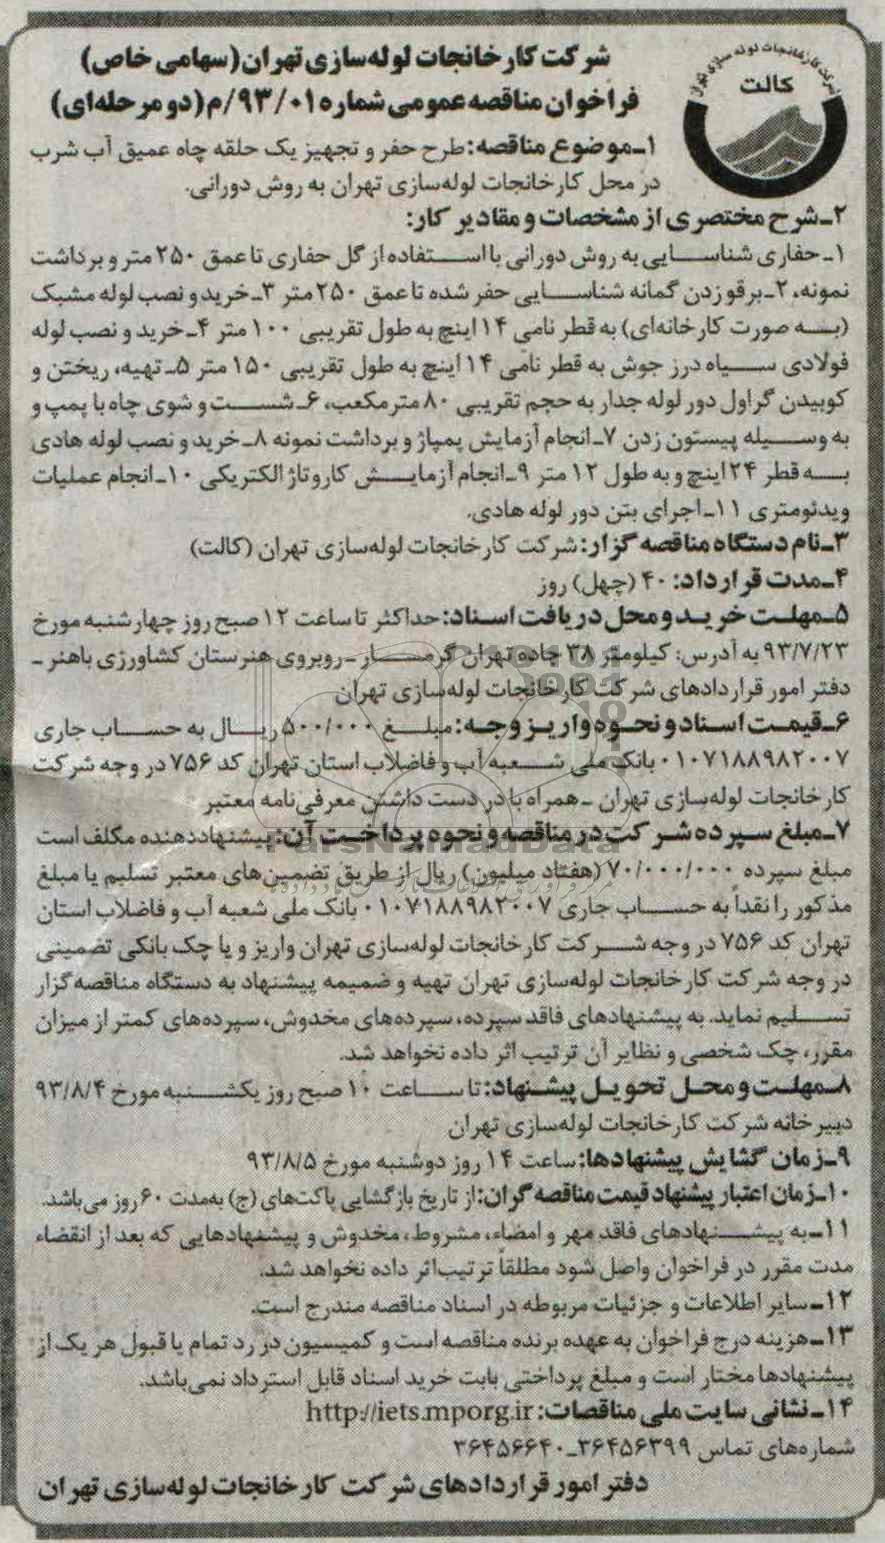 شرکت کارخانجات لوله‌سازی تهران (سهامی خاص)
فراخوان مناقصه عمومی شماره ۹۳/۰۱/م (دو مرحله‌ای)
شرکت کارخانجات لوله سازی تهران
کالت
۱ـ موضوع مناقصه: طرح حفر و تجهیز یک حلقه چاه عمیق آب شرب
در محل کارخانجات لوله‌سازی تهران به روش دورانی.
۲ـ شرح مختصری از مشخصات و مقادیر کار:
۱ـ حفاری شناسایی به روش دورانی با استفاده از گل حفاری تا عمق ۲۵۰ متر و برداشت
نمونه، ۲ـ برقو زدن گمانه شناسایی حفر شده تا عمق ۲۵۰ متر ۳ـ خرید و نصب لوله مشبک
(به صورت کارخانه‌ای) به قطر نامی ۱۴ اینچ به طول تقریبی ۱۰۰ متر ۴ـ خرید و نصب لوله
فولادی سیاه درز جوش به قطر نامی ۱۴ اینچ به طول تقریبی ۱۵۰ متر ۵ـ تهیه، ریختن و
کوبیدن گراول دور لوله جدار به حجم تقریبی ۸۰ متر مکعب، ۶ـ شست و شوی چاه با پمپ و
به وسیله پیستون زدن ۷ـ انجام آزمایش پمپاژ و برداشت نمونه ۸ـ خرید و نصب لوله هادی
به قطر ۲۴ اینچ و به طول ۱۲ متر ۹ـ انجام آزمایش کاروتاژ الکتریکی ۱۰ـ انجام عملیات
ویدئومتری ۱۱ـ اجرای بتن دور لوله هادی.
۳ـ نام دستگاه مناقصه گزار: شرکت کارخانجات لوله‌سازی تهران (کالت)
۴ـ مدت قرارداد: ۴۰ (چهل) روز
۵ـ مهلت خرید و محل دریافت اسناد: حداکثر تا ساعت ۱۲ صبح روز چهارشنبه مورخ
۹۳/۷/۲۳ به آدرس: کیلومتر ۳۸ جاده تهران گرمسار ـ روبروی هنرستان کشاورزی باهنر ـ
دفتر امور قراردادهای شرکت کارخانجات لوله‌سازی تهران
۶ـ قیمت اسناد و نحوه واریز وجه: مبلغ ۵۰۰/۰۰۰ ریال به حساب جاری
۰۱۰۷۱۸۸۹۸۲۰۰۷ بانک ملی شعبه آب و فاضلاب استان تهران کد ۷۵۶ در وجه شرکت
کارخانجات لوله‌سازی تهران ـ همراه با در دست داشتن معرفی‌نامه معتبر
۷ـ مبلغ سپرده شرکت در مناقصه و نحوه پرداخت آن: پیشنهاددهنده مکلف است
ParsNamadData
مبلغ سپرده ۷۰/۰۰۰/۰۰۰ (هفتاد میلیون) ریال از طریق تضمین‌های معتبر تسلیم یا مبلغ
مذکور را نقداً به حساب جاری ۰۱۰۷۱۸۸۹۸۲۰۰۷ بانک ملی شعبه آب و فاضلاب استان
تهران کد ۷۵۶ در وجه شرکت کارخانجات لوله‌سازی تهران واریز و یا چک بانکی تضمینی
در وجه شرکت کارخانجات لوله‌سازی تهران تهیه و ضمیمه پیشنهاد به دستگاه مناقصه گزار
تسلیم نماید. به پیشنهادهای فاقد سپرده، سپرده‌های مخدوش، سپرده‌های کمتر از میزان
مقرر، چک شخصی و نظایر آن ترتیب اثر داده نخواهد شد.
۸ـ مهلت و محل تحویل پیشنهاد: تا ساعت ۱۰ صبح روز یکشنبه مورخ ۹۳/۸/۴
دبیرخانه شرکت کارخانجات لوله‌سازی تهران
۹ـ زمان گشایش پیشنهادها: ساعت ۱۴ روز دوشنبه مورخ ۹۳/۸/۵
۱۰ـ زمان اعتبار پیشنهاد قیمت مناقصه گران: از تاریخ بازگشایی پاکت‌های (ج) به‌مدت ۶۰ روز می‌باشد.
۱۱ـ به پیشنهادهای فاقد مهر و امضاء، مشروط، مخدوش و پیشنهادهایی که بعد از انقضاء
مدت مقرر در فراخوان واصل شود مطلقاً ترتیب‌اثر داده نخواهد شد.
۱۲ـ سایر اطلاعات و جزئیات مربوطه در اسناد مناقصه مندرج است.
۱۳ـ هزینه درج فراخوان به عهده برنده مناقصه است و کمیسیون در رد تمام یا قبول هر یک از
پیشنهادها مختار است و مبلغ پرداختی بابت خرید اسناد قابل استرداد نمی‌باشد.
۱۴ـ نشانی سایت ملی مناقصات: http://iets.mporg.ir
شماره‌های تماس ۳۶۴۵۶۳۹۹ـ۳۶۴۵۶۶۴۰
دفتر امور قراردادهای شرکت کارخانجات لوله‌سازی تهران